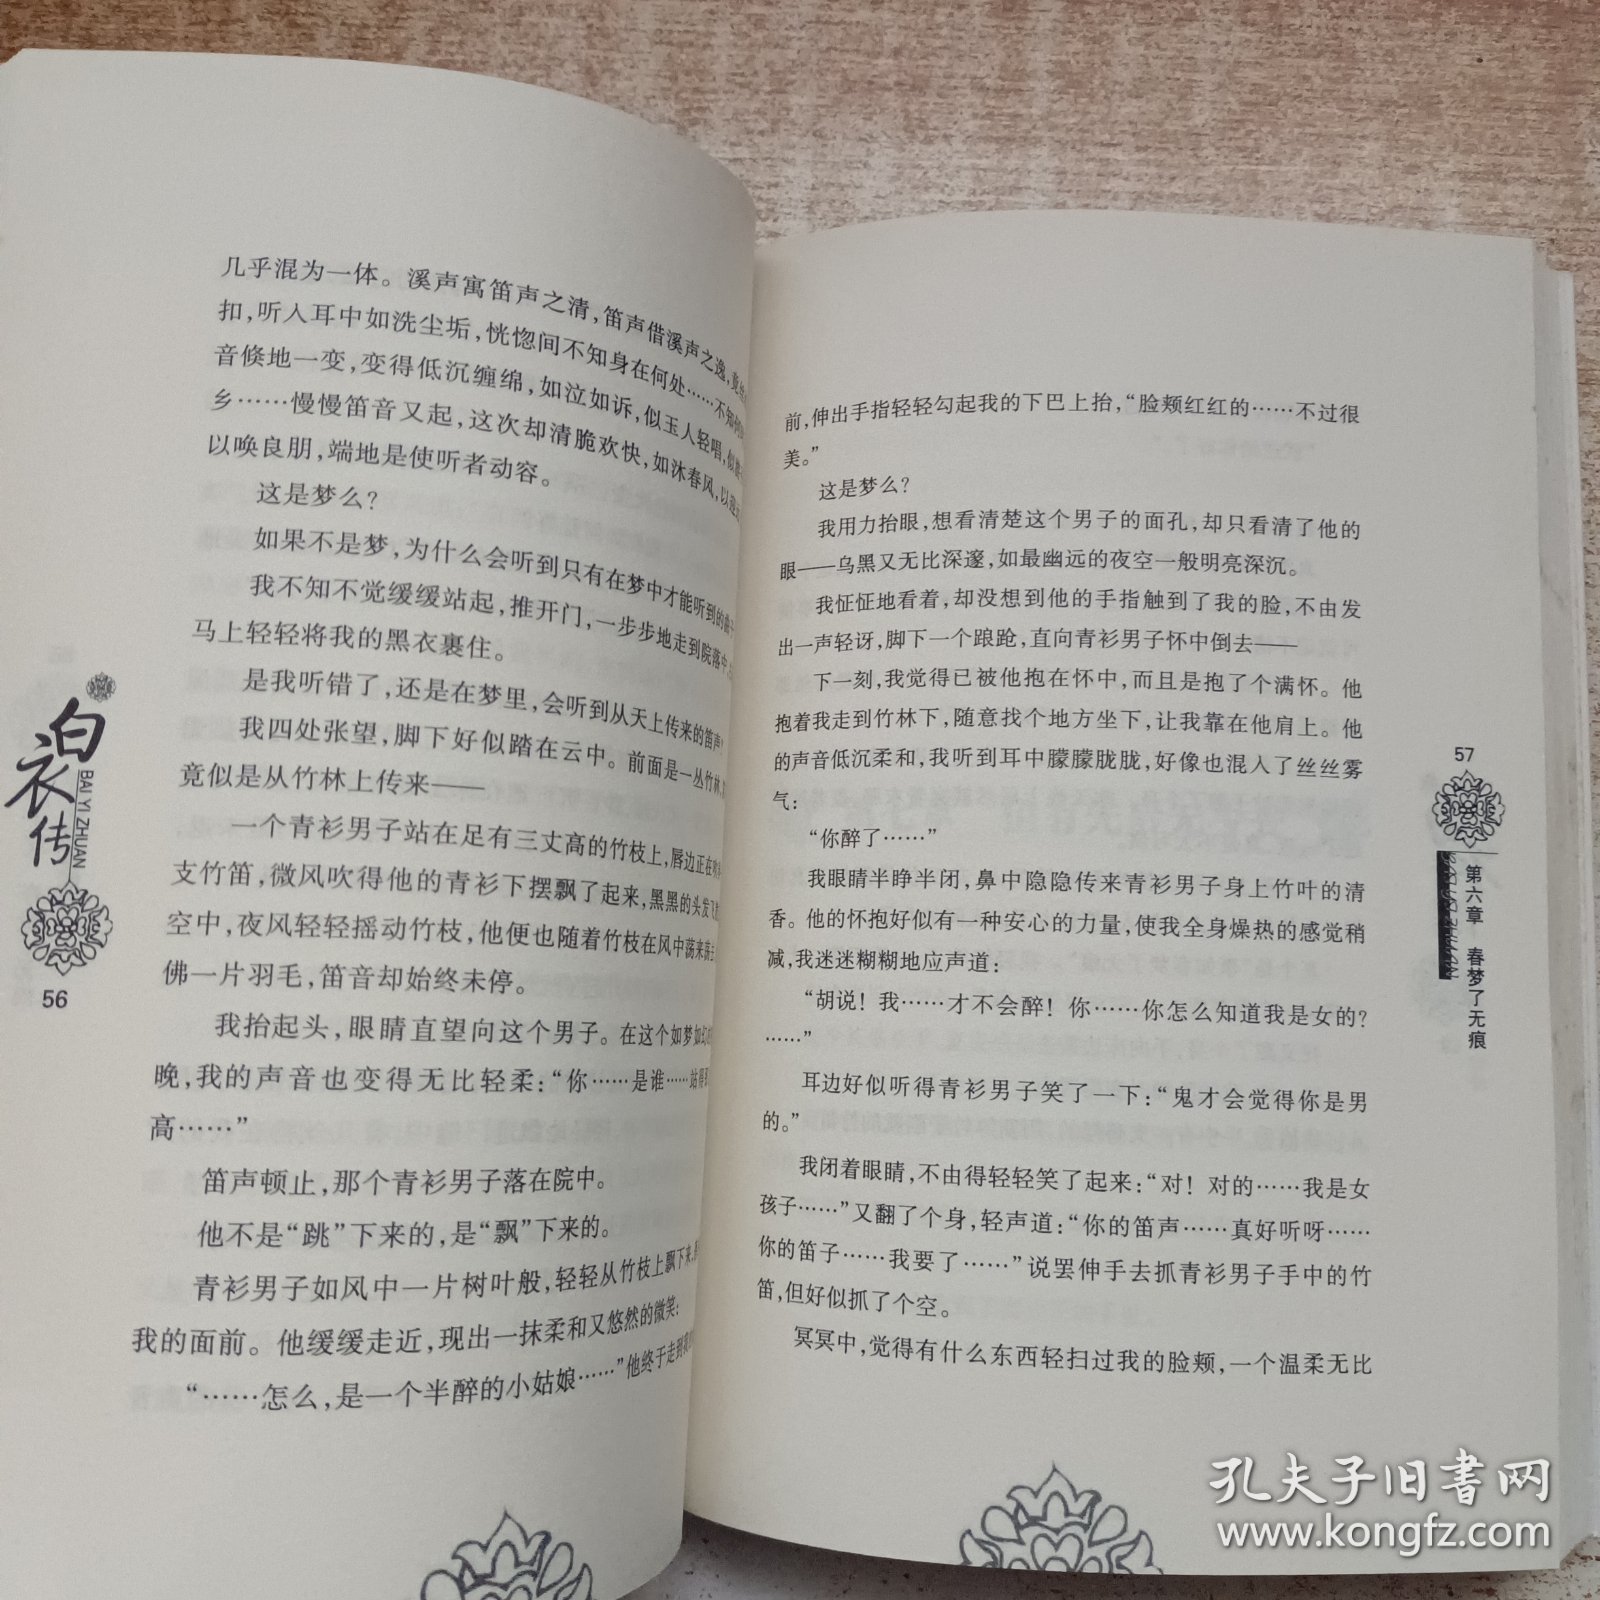 几乎混为一体。溪声寓笛声之清，笛声借溪声之逸，竟
扣，听入耳中如洗尘垢，恍惚间不知身在何处……不知
音倏地一变，变得低沉缠绵，如泣如诉，似玉人轻唱，似
乡……慢慢笛音又起，这次却清脆欢快，如沐春风，以
以唤良朋，端地是使听者动容。
这是梦么？
如果不是梦，为什么会听到只有在梦中才能听到的曲
我不知不觉缓缓站起，推开门，一步步地走到院落中
马上轻轻将我的黑衣裹住。
是我听错了，还是在梦里，会听到从天上传来的笛声
我四处张望，脚下好似踏在云中。前面是一丛竹林，
竟似是从竹林上传来——
一个青衫男子站在足有三丈高的竹枝上，唇边正在
支竹笛，微风吹得他的青衫下摆飘了起来，黑黑的头发飞
空中，夜风轻轻摇动竹枝，他便也随着竹枝在风中荡来荡
佛一片羽毛，笛音却始终未停。
我抬起头，眼睛直望向这个男子。在这个如梦如幻的
晚，我的声音也变得无比轻柔：“你……是谁……站得
高……”
笛声顿止，那个青衫男子落在院中。
他不是“跳”下来的，是“飘”下来的。
青衫男子如风中一片树叶般，轻轻从竹枝上飘下来，
我的面前。他缓缓走近，现出一抹柔和又悠然的微笑：
“……怎么，是一个半醉的小姑娘……”他终于走到我
白衣传
BAI YI ZHUAN
56
前，伸出手指轻轻勾起我的下巴上抬，“脸颊红红的……不过很
美。”
这是梦么？
我用力抬眼，想看清楚这个男子的面孔，却只看清了他的
眼——乌黑又无比深邃，如最幽远的夜空一般明亮深沉。
我怔怔地看着，却没想到他的手指触到了我的脸，不由发
出一声轻讶，脚下一个踉跄，直向青衫男子怀中倒去——
下一刻，我觉得已被他抱在怀中，而且是抱了个满怀。他
抱着我走到竹林下，随意找个地方坐下，让我靠在他肩上。他
的声音低沉柔和，我听到耳中朦朦胧胧，好像也混入了丝丝雾
气：
“你醉了……”
我眼睛半睁半闭，鼻中隐隐传来青衫男子身上竹叶的清
香。他的怀抱好似有一种安心的力量，使我全身燥热的感觉稍
减，我迷迷糊糊地应声道：
“胡说！我……才不会醉！你……你怎么知道我是女的？
……”
耳边好似听得青衫男子笑了一下：“鬼才会觉得你是男
的。”
我闭着眼睛，不由得轻轻笑了起来：“对！对的……我是女
孩子……”又翻了个身，轻声道：“你的笛声……真好听呀……
你的笛子……我要了……”说罢伸手去抓青衫男子手中的竹
笛，但好似抓了个空。
冥冥中，觉得有什么东西轻扫过我的脸颊，一个温柔无比
57
第六章 春梦了无痕
孔夫子旧书网
www.kongfz.com